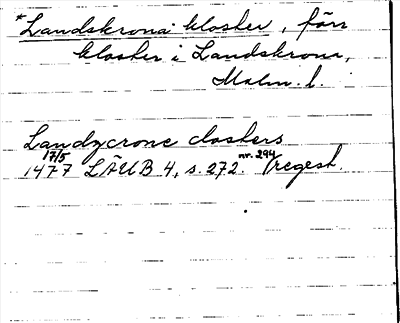 *Landskrona kloster, förr
kloster i Landskrona,
Malm. l.
Landzcrone closters
17/5 nr. 294
1477 LÄUB 4, s. 272. (regest.